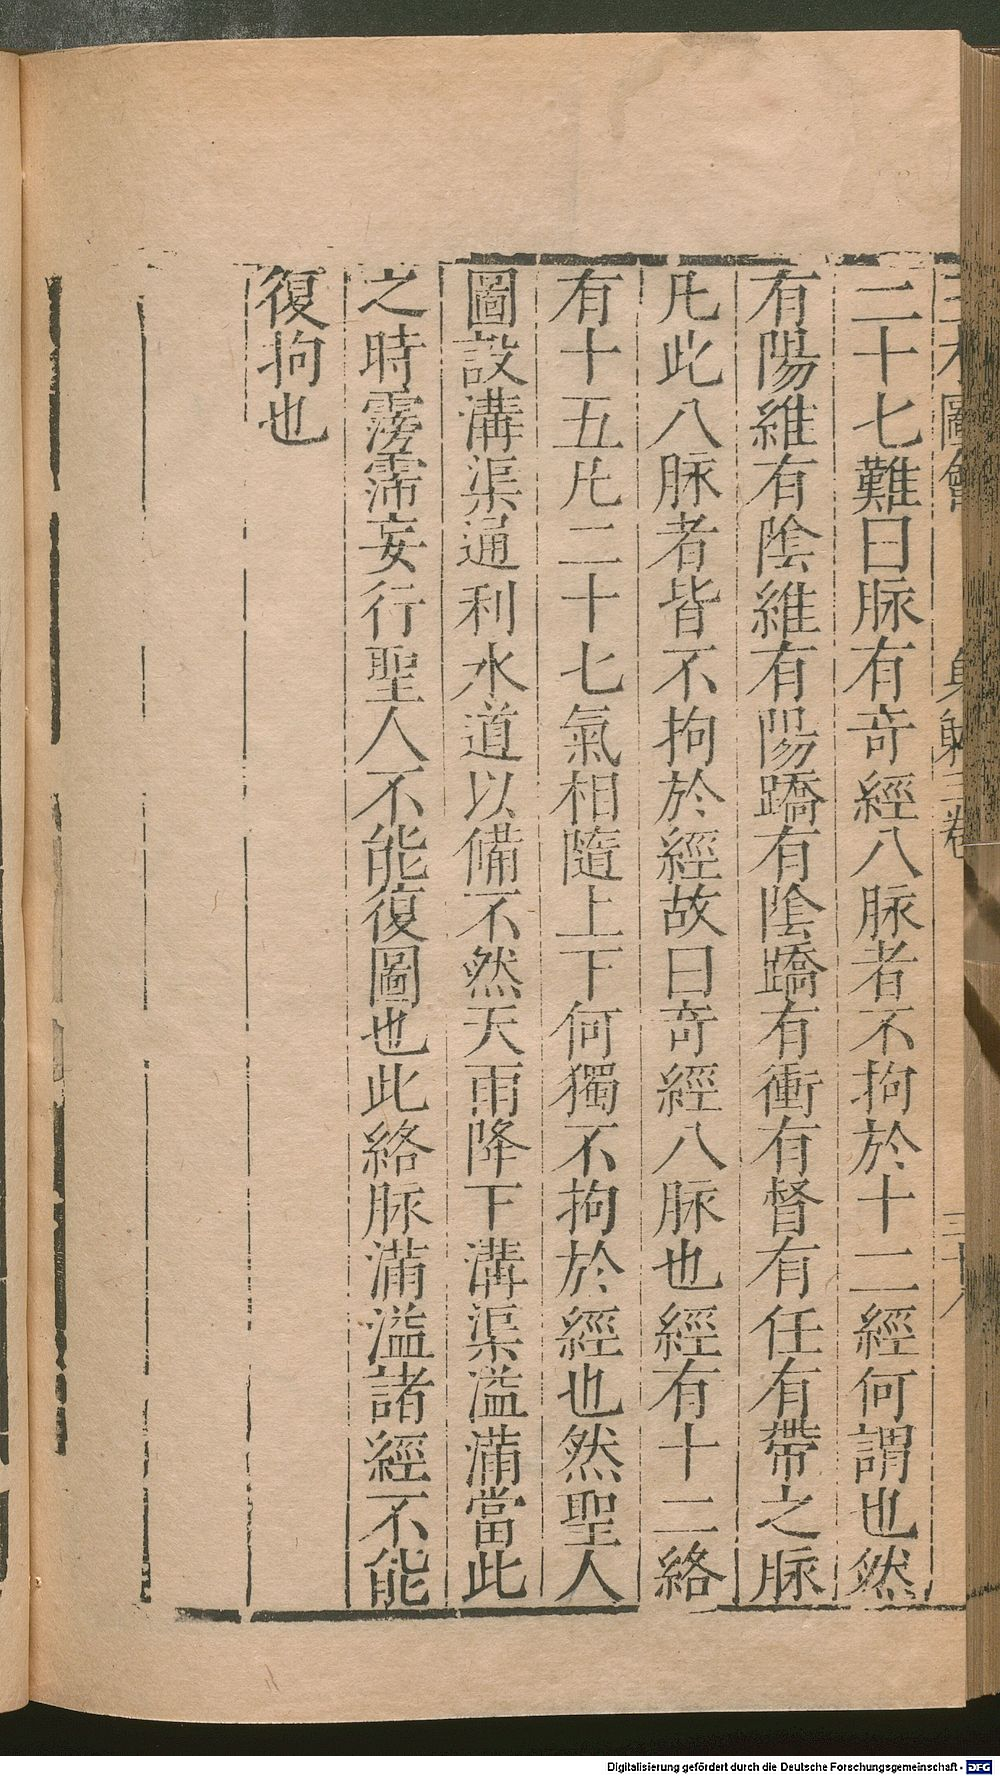 三才圖會 身體三卷 三十八
二十七難曰脉有奇經八脉者不拘於十二經何謂也然
有陽維有陰維有陽蹻有陰蹻有衝有督有任有帶之脉
凡此八脉者皆不拘於經故曰奇經八脉也經有十二絡
有十五凡二十七氣相隨上下何獨不拘於經也然聖人
圖設溝渠通利水道以備不然天雨降下溝渠溢滿當此
之時霶霈妄行聖人不能復圖也此絡脉滿溢諸經不能
復拘也
Digitalisierung gefördert durch die Deutsche Forschungsgemeinschaft - DFG